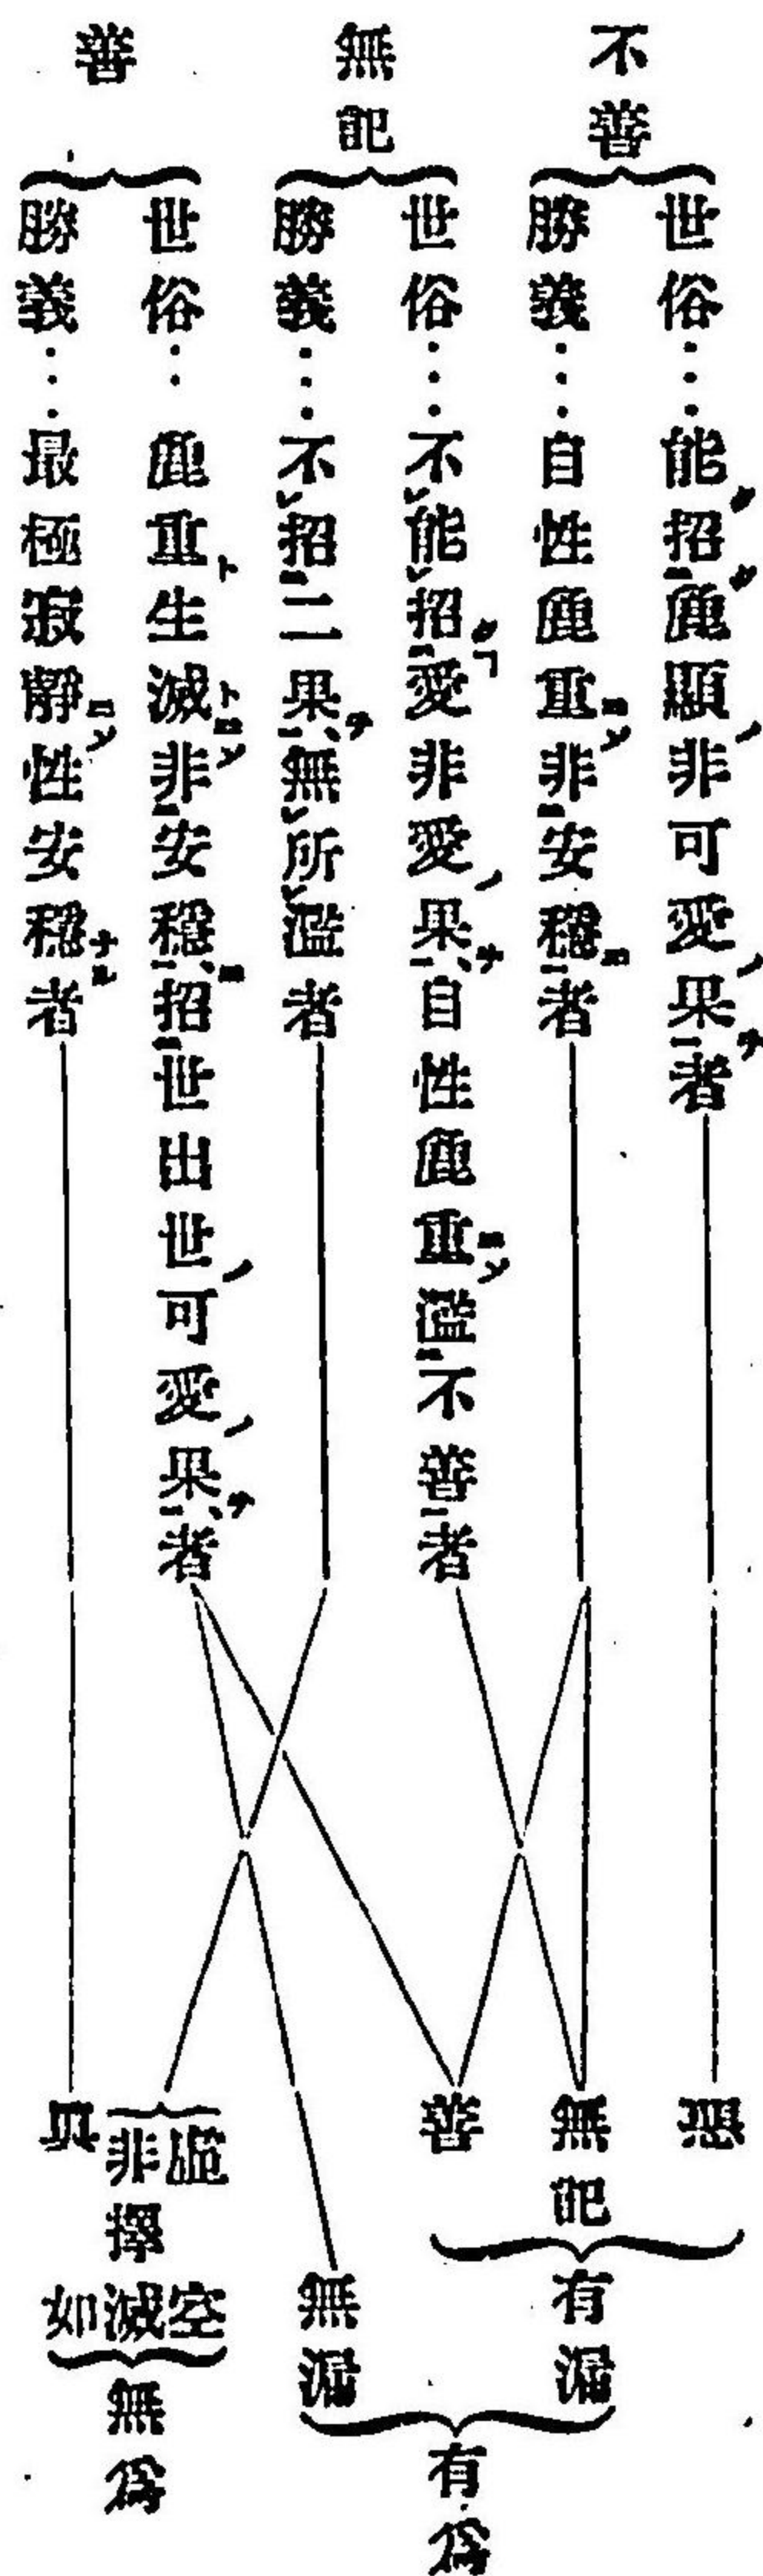 不善
世俗…能招麁顯非可愛果者
勝義…自性麁重非安穩者
無記
世俗…不能招愛非愛果自性麁重濫不善者
勝義…不招二果無所濫者
善
世俗…麁重生滅非安穩招世出世可愛果者
勝義…最極寂靜性安穩者
惡
無記
善
有漏
無漏
有爲
虛空
非擇滅
眞如
無爲